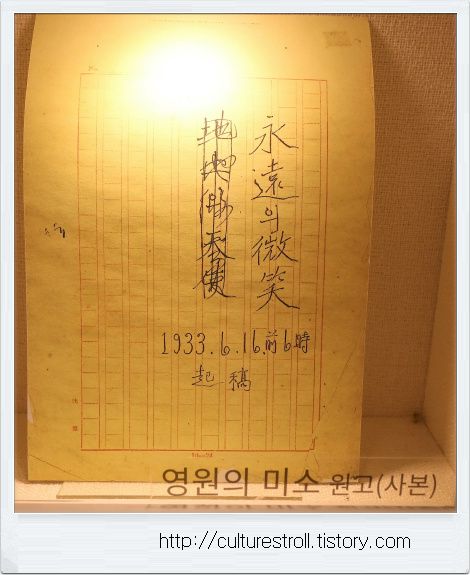 永遠의微笑
1933.6.16.前6時
起稿
영원의 미소 원고(사본)
http://culturestroll.tistory.com